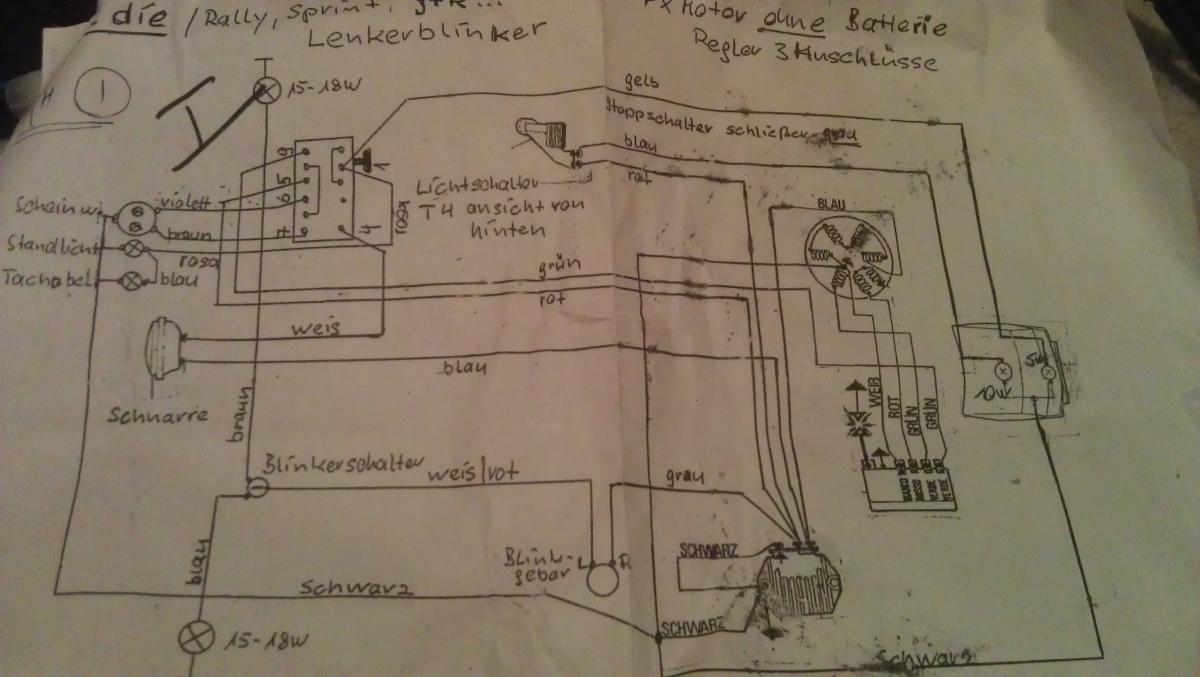 die / Rally, Sprint,
PX Motor ohne Batterie
Lenkerblinker
Regler 3 Anschlüsse
H.
1
15-18W
gelb
Stoppschalter schließer grau
blau
rot
Lichtschalter
T4 ansicht von
hinten
9
5
6
7
1
4
rosa
Scheinw.
violett
braun
Standlicht
rosa
Tachobel.
blau
BLAU
grün
rot
weis
blau
Schnarre
braun
10W
5W
WEIß
ROT
GRÜN
GRÜN
BIANCO
ROSSO
VERDE
VERDE
Blinkerschalter
weis/rot
grau
blau
Blink-
geber
L
R
SCHWARZ
Schwarz
SCHWARZ
15-18W
Schwarz